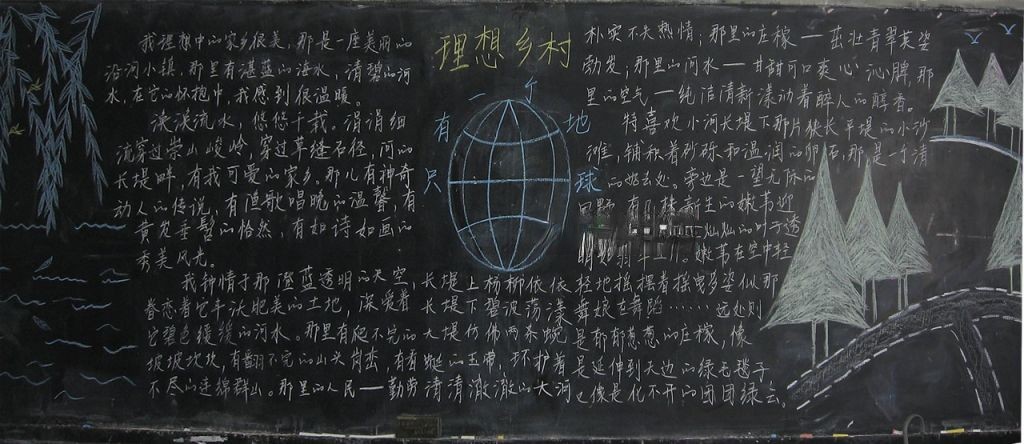 理想乡村
我理想中的家乡很美,那是一座美丽的
沿河小镇,那里有湛蓝的海水,清碧的河
水,在它的怀抱中,我感到很温暖。
淙淙流水,悠悠千载。涓涓细
流穿过崇山峻岭,穿过草缝石径,河的
长堤畔,有我可爱的家乡。那儿有神奇
动人的传说,有渔歌唱晚的温馨,有
黄发垂髫的怡然,有如诗如画的
秀美风光。
我钟情于那澄蓝透明的天空,
眷恋着它丰沃肥美的土地,深爱着
它碧色缓缓的河水。那里有爬不完的
坡坡坎坎,有翻不完的山头岗峦,有看
不尽的连绵群山。那里的人民——勤劳
只
有
一
个
地
球
朴实不失热情;那里的庄稼——茁壮青翠英姿
勃发;那里的河水——甘甜可口爽心沁脾,那
里的空气——纯洁清新漾动着醉人的醇香。
特喜欢小河长堤下那片狭长平堤的小沙
滩,铺积着砂砾和温润的卵石,那是一个清
的好去处。旁边是一望无际的
田野,有几株新生的嫩苇迎
灿灿的叶子透
嫩苇在空中轻
长堤上杨柳依依,轻地摇摆着摇曳多姿似那
长堤下碧波荡漾,舞娘在舞蹈……远处则
大堤仿佛两条蜿 是郁郁葱葱的庄稼,像
蜒的玉带,环护着 是延伸到天边的绿色毯子
清清澈澈的大河 也像是化不开的团团绿云。